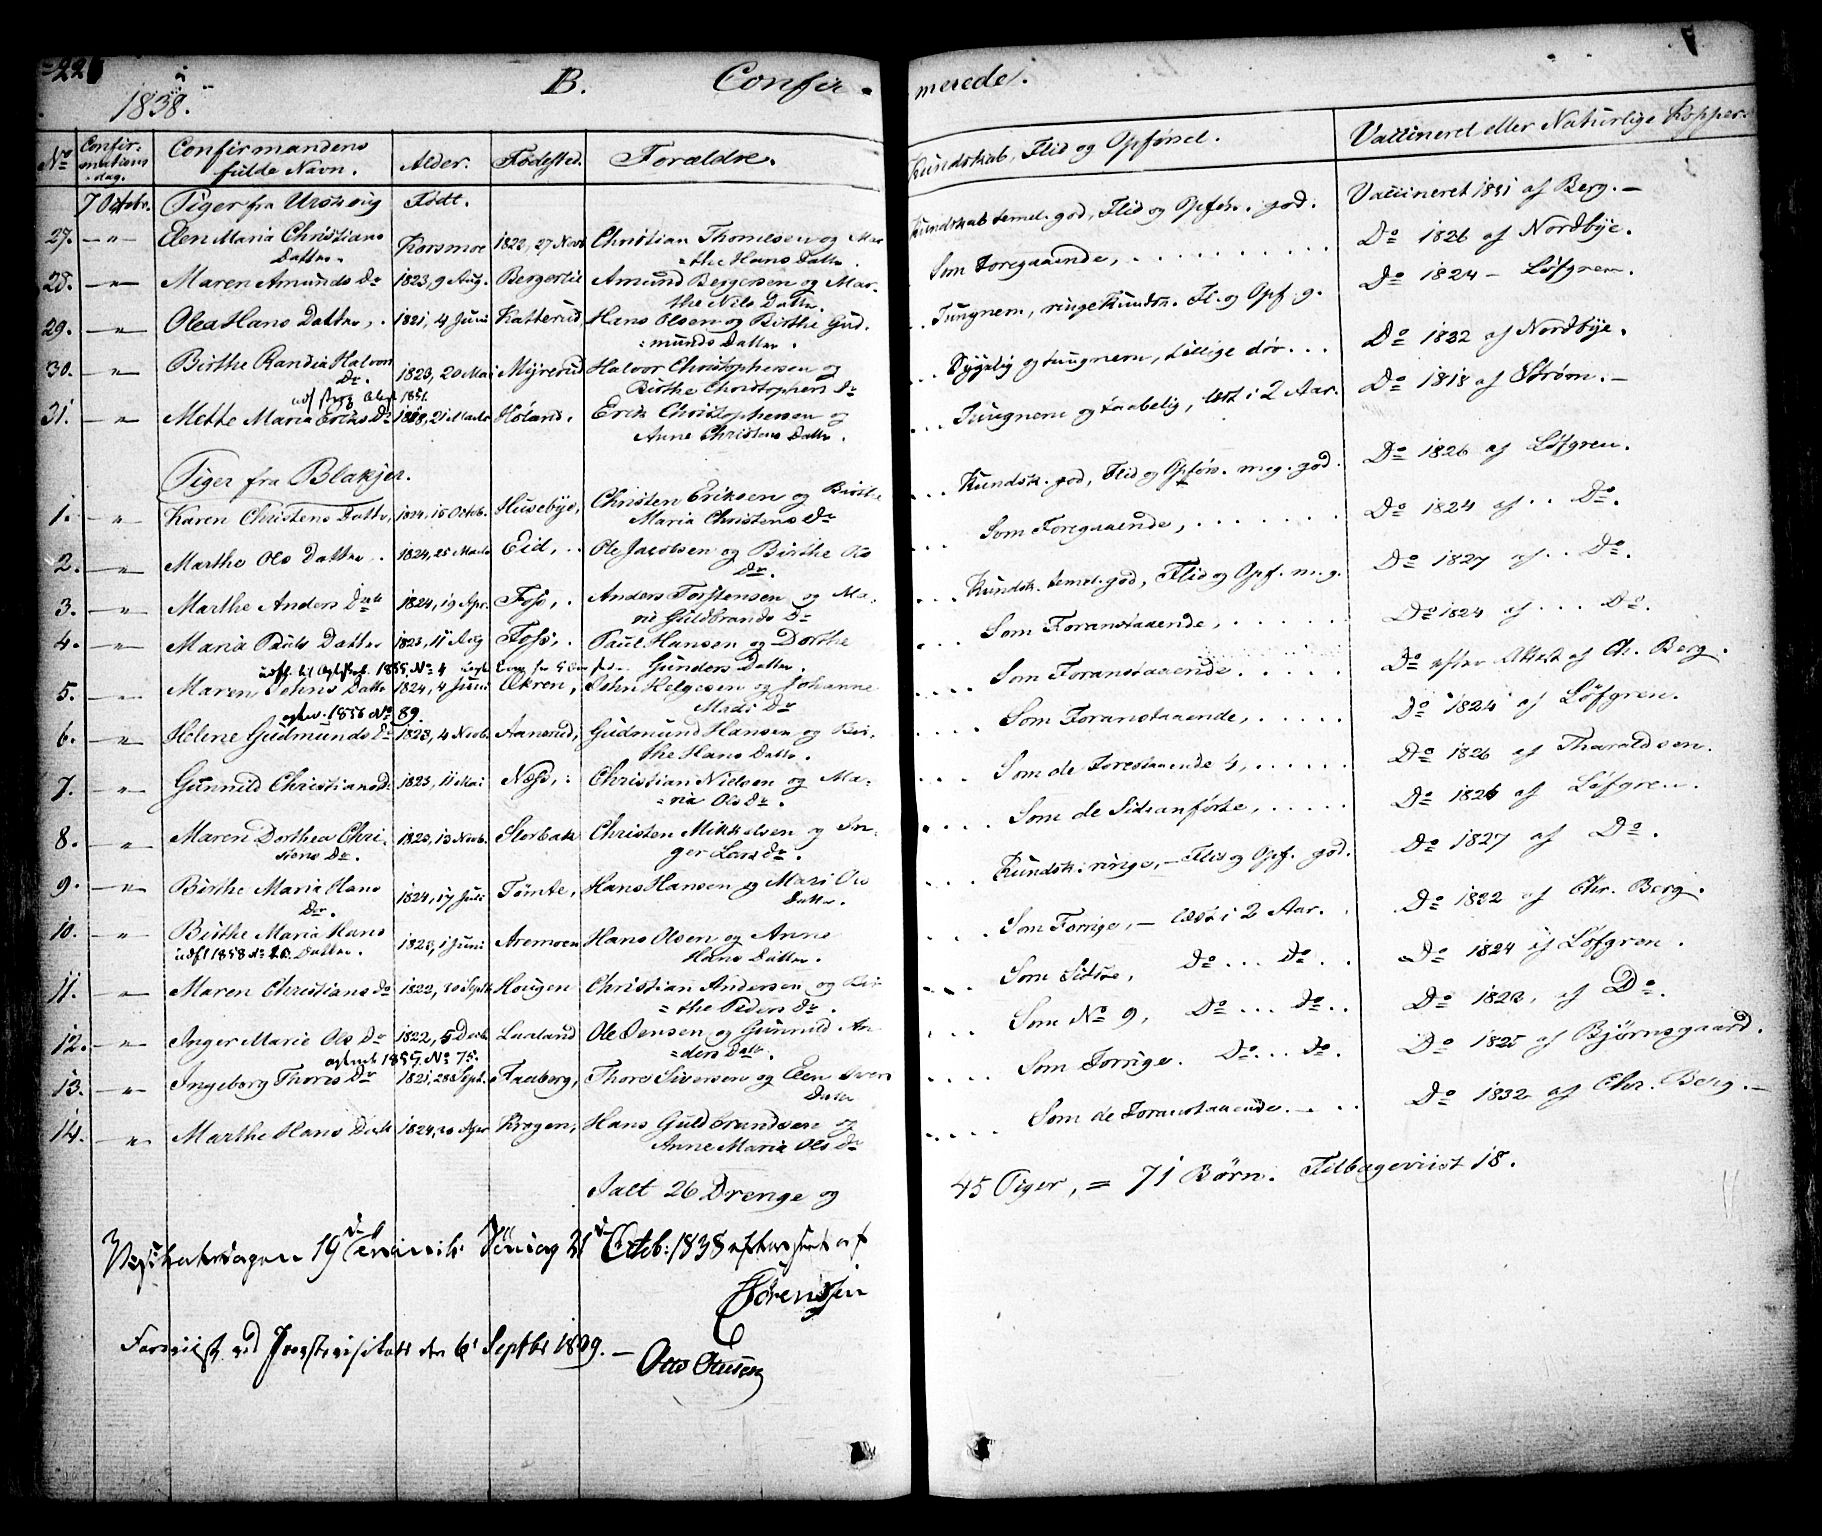 1838.
B. Confir-
merede.
No
Confir-
mations
dag.
Confirmandens
fulde Navn.
Alder.
Fødested.
Forældre.
Kundskab, Flid og Opførsel.
Vaccineret eller Naturlige Kopper.
7 Octobr. Piger fra Urskoug Født.
27. — " — Elen Maria Christians Korsmoe 1822, 27 Novb Christian Thomesen og Mar Kundskab temel. god, Flid og Opfør. god. Vaccineret 1831 af Berg. —
Datter = the Hans Datter.
28. — " — Maren Amunds Dr 1823, 9 Aug. Bergerlie Amund Bergersen og Mar- Som Foregaaende, Do 1826 af Nordbye.
the Nils Datter.
29. — " — Olea Hans Datter, 1821, 4 Juni Katterud, Hans Olsen og Birthe Gud- Tungnem, ringe Kundsk. Fl. og Opf. g. Do 1824 - Løfgren.
= munds Datter.
30. — " — Birthe Randia Halvors 1823, 20 Mai Myrerud Halvor Christophersen og Sygelig og tungnem, tillige døv... Do 1832 af Nordbye.
Dr. Birthe Christophers Dr
1851.
31. — " — Mette Maria Eriks Dr 1818, 21 Marts Høland. Erik Christophersen og Tungnem og taabelig, læst i 2 Aar. Do 1818 af Strøm. —
Anne Christens Datter.
Piger fra Blakjer.
1. — " — Karen Christens Datter, 1824, 15 Octob. Husebye, Christen Eriksen og Birthe Kundsk. god, Flid og Opfør. meg. god. Do 1826 af Løfgren.
Maria Christens Dr
2. — " — Marthe Ols Datter. 1824, 25 Marts Eid, Ole Jacobsen og Birthe Ols Som Foregaaende, Do 1824 af Do.
Dr.
3. — " — Marthe Anders Datr 1824, 19 Apr. Foss, Anders Torstensen og Ma- Kundsk. temel. god, Flid og Opf. m. g. Do 1827 af Do.
rie Guldbrands Dr
4. — " — Maria Pauls Datter 1823, 11 Aug Foss, Paul Hansen og Dorthe Som Foranstaaende, Do 1824 af Do.
Gunders Datter.
5. — " — Maren Johns Datter 1824, 4 Juni Økren, John Helgesen og Johanne Som Foranstaaende, Do efter Attest af Ch. Berg.
Mads Dr
1856 No 89.
6. — " — Helene Gudmunds Dr 1823, 4 Novb. Aanerud, Gudmund Hansen og Bir- Som Foranstaaende, Do 1824 af Løfgren.
the Hans Datter.
7. — " — Gunnild Christians Dr 1823, 11 Mai Næss, Christian Nielsen og Ma- Som de Forestaaende 4, Do 1826 af Tharaldsen.
= ria Ols Dr.
8. — " — Maren Dorthea Chri- 1823, 13 Novb. Storbak Christen Mikkelsen og In- Som de Sidsanførte, Do 1826 af Løfgren.
stens Dr. ger Lars Dr.
9. — " — Birthe Maria Hans 1824, 17 Juli Tønte, Hans Hansen og Mari Ols Kundsk. ringe, — Flid og Opf. god. Do 1827 af Do.
Dr. Datter.
10. — " — Birthe Maria Hans 1823, 1 Juni Aremoen Hans Olsen og Anne Som Forrige, — læst i 2 Aar. Do 1822 af Chr. Berg.
udfl 1858 Datter. Hans Datter.
11. — " — Maren Christians Dr 1822, 30 Septb Hougen Christian Andersen og Bir Som Sidste, Do Do Do 1824 af Løfgren.
= the Peders Dr.
12. — " — Inger Marie Ols Dr 1822, 5 Decb. Lurland Ole Jensen og Gunnild An- Som No 9, Do Do Do 1822, af Do.
= ders Datr.
No 75.
13. — " — Ingeborg Thores Dr 1821, 28 Sept. Faaberg, Thore Siversen og Elen Ivers Som Forrige. Do Do. Do 1825 af Bjørnsgaard.
Datter
14. — " — Marthe Hans Datr 1824, 20 Apr Krogen, Hans Guldbrandsen og Som de Foranstaaende. Do 1832 af Chr. Berg. —
Anne Maria Ols Dr
I alt 26 Drenge og 45 Piger, = 71 Børn. Tilbageviist 18.
19de 21de Octb: 1838 af
Sørenssen
Foreviist ved Provstevisitats den 6te Septbr 1839. —
Otto